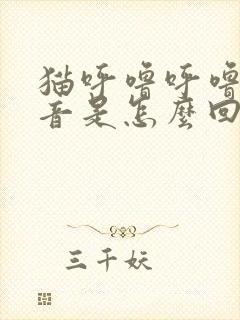 猫呼噜呼噜
音是怎麼回
三千妖